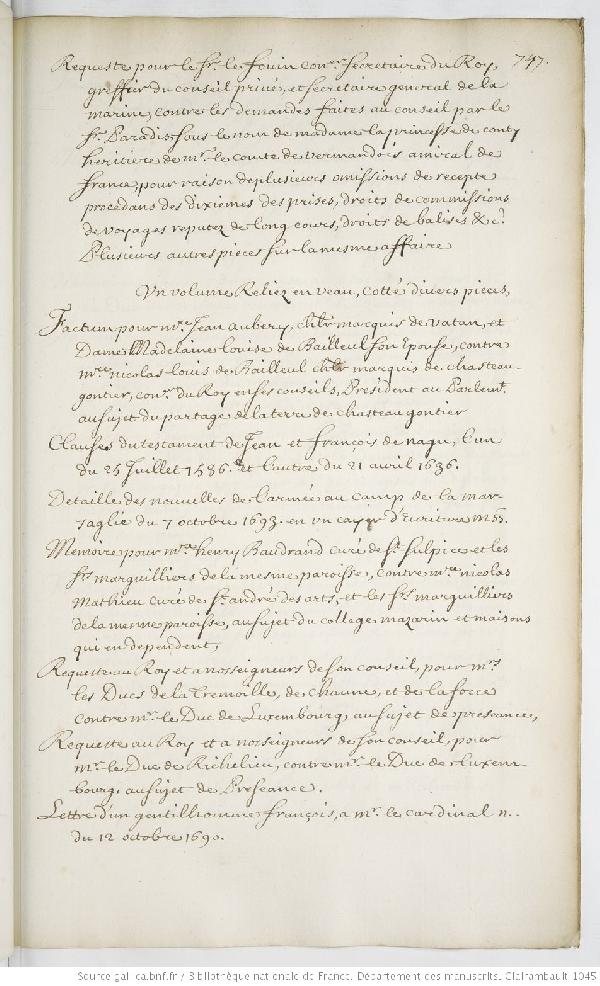 747.
Requeste pour le Sr. le fouin conr. secretaire du Roy,
greffier du conseil privé, et secretaire general de la
marine, contre les demandes faites au conseil par le
Sr. Paradis, sous le nom de madame la princesse de conty
heritiere de mr. le comte de vermandois amiral de
france, pour raison de plusieurs omissions de recepte
procedans des dixiemes des prises, droits de commissions
de voyages reputez de long cours, droits de balises &c.
Plusieurs autres pieces sur la mesme affaire
Un volume Reliez en veau, cotté divers pieces,
Factum pour mre. Jean aubery, chlr marquis de vatan, et
Dame Madelaine Louise de Bailleul son Epouse, contre
mre nicolas Louis de Bailleul chlr marquis de chasteau-
gontier, conr. du Roy en ses conseils, President au Parlemt.
au sujet du partage de la terre de chasteaugontier
Clauses du testament de Jean et françois de nagu, l'un
du 25 Juillet 1586. et l'autre du 21 avril 1636.
Detaille des nouvelles de l'armée au camp de la mar-
saglie du 7 octobre 1693. en un cayer d'Ecriture mss.
Memoire pour mre. henry Baudrand curé de St. sulpice et les
Srs. marguilliers de la mesme paroisse, contre mre. nicolas
Mathieu curé de St. andré des arts, et les Srs. marguilliers
de la mesme paroisse, au sujet du college mazarin et maisons
qui en dependent,
Requeste au Roy et a nosseigneurs de son conseil, pour mrs.
les Ducs de la Tremoille, de chaune, et de la force
contre mr. le Duc de Luxembourg, au sujet de preseance,
Requeste au Roy et a nosseigneurs de son conseil, pour
mr. le Duc de Richelieu, contre mr. le Duc de Luxem-
bourg, au sujet de Preseance.
Lettre d'un gentilhomme françois, a mr. le cardinal n..
du 12 octobre 1690.
Source gallica.bnf.fr / Bibliothèque nationale de France. Département des manuscrits. Clairambault 1045